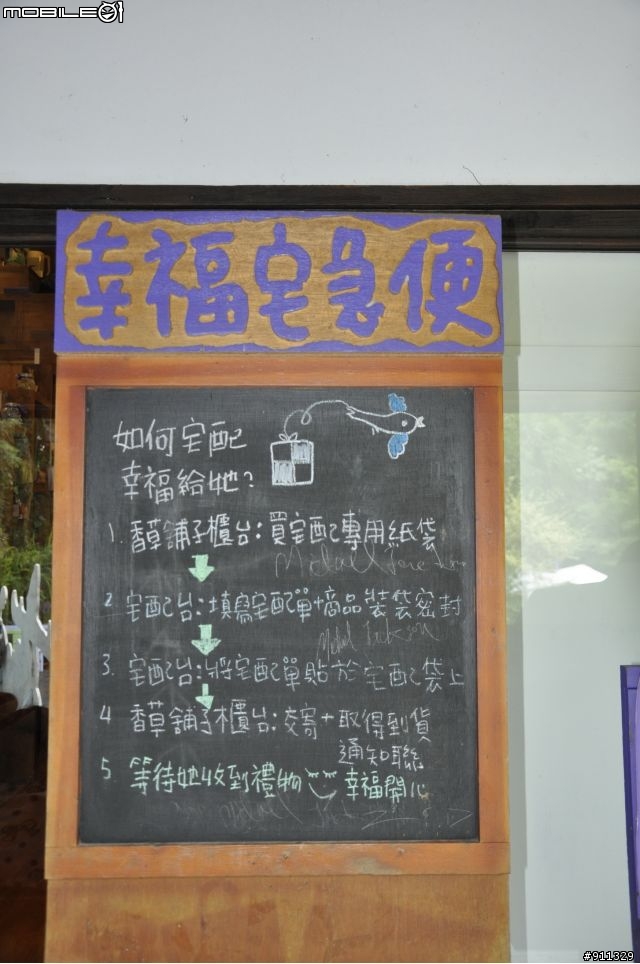 MOBILE01
幸福宅急便
如何宅配
幸福給她?
1. 香草舖子櫃台:買宅配專用紙袋
2. 宅配台:填寫宅配單+商品裝袋密封
3. 宅配台:將宅配單貼於宅配袋上
4 香草舖子櫃台:交寄+取得到貨
通知聯
5. 等待她收到禮物 幸福開心
#911329